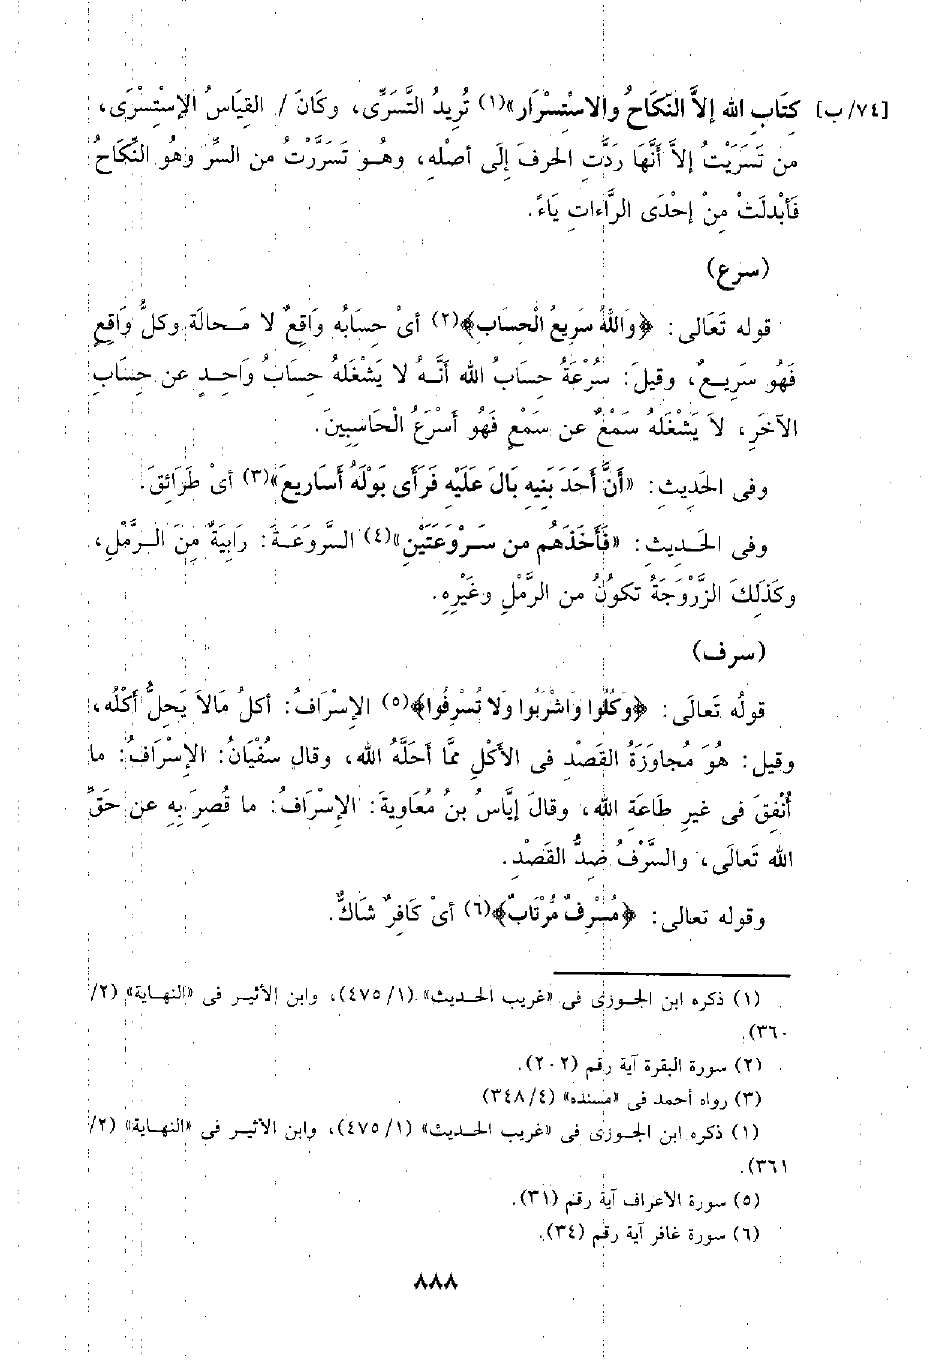 [٧٤/ب] كتَابِ الله إلاَّ النِّكَاحُ والاسْتِسْرَار»(١) تُرِيدُ التَّسَرِّى، وكَانَ / القِيَاسُ الإسْتِسْرَى،
من تَسَرَيْتُ إلاَّ أَنَّهَا رَدَّت الحرفَ إلَى أصْلِه، وهُو تَسَرَّرْتُ من السرِّ وهُو النِّكَاحُ
فَأبْدلَتْ مِنْ إحْدَى الرَّاءاتِ يَاءً.
(سرع)
قوله تَعَالى: ﴿وَاللَّهُ سَرِيعُ الْحِسَابِ﴾(٢) أىْ حِسَابُه وَاقِعٌ لا مَحالَة وكلُّ وَاقِعٍ
فَهُو سَرِيعٌ، وقيلَ: سُرْعَةُ حِسَابُ الله أنَّهُ لا يَشْغَلهُ حسَابُ وَاحِدٍ عن حِسَابِ
الآخَرِ، لاَ يَشْغَلهُ سَمْعٌ عن سَمْعٍ فَهُو أسْرَعُ الْحَاسِبِينَ.
وفى الحَدِيث: «أَنَّ أَحَدَ بَنِيه بَالَ عَلَيْه فَرَأَى بَوْلَهُ أَسَارِيعَ»(٣) أىْ طَرَائِقَ.
وفى الحَديثِ: «فَأَخَذَهُم من سَرْوَعَتَيْنِ»(٤) السَّروَعَةَ: رَابِيَةٌ مِنَ الرَّمْلِ،
وكَذَلِكَ الزَّرْوَحَةُ تكوُنُ من الرَّمْلِ وغَيْرِهِ.
(سرف)
قولُه تَعَالَى: ﴿وَكُلُوا وَاشْرَبُوا وَلا تُسْرِفُوا﴾(٥) الإسْرَافُ: أكلُ مَالاَ يَحِلُّ أَكْلُه،
وقيل: هُوَ مُجاوَزَةُ القَصْدِ فى الأَكْلِ ممَّا أحَلَّهُ الله، وقال سُفْيَانُ: الإسْرَافُ: ما
أُنْفِقَ فى غيرِ طَاعَةِ الله، وقالَ إيَّاسُ بنُ مُعَاوِيةَ: الإسْرَافُ: ما قُصِرَ بِهِ عن حَقِّ
الله تَعَالَى، والسَّرْفُ ضِدُّ القَصْدِ.
وقوله تعالى: ﴿مُسْرِفٌ مُرْتَابٌ﴾(٦) أىْ كَافِرٌ شَاكٌّ.
(١) ذكره ابن الجوزى فى «غريب الحديث» (١/ ٤٧٥)، وابن الأثير فى «النهاية» (٢/
٣٦٠).
(٢) سورة البقرة آية رقم (٢٠٢).
(٣) رواه أحمد فى «مسنده» (٤/ ٣٤٨)
(١) ذكره ابن الجوزى فى «غريب الحديث» (١/ ٤٧٥)، وابن الأثير فى «النهاية» (٢/
٣٦١).
(٥) سورة الأعراف آية رقم (٣١).
(٦) سورة غافر آية رقم (٣٤).
٨٨٨